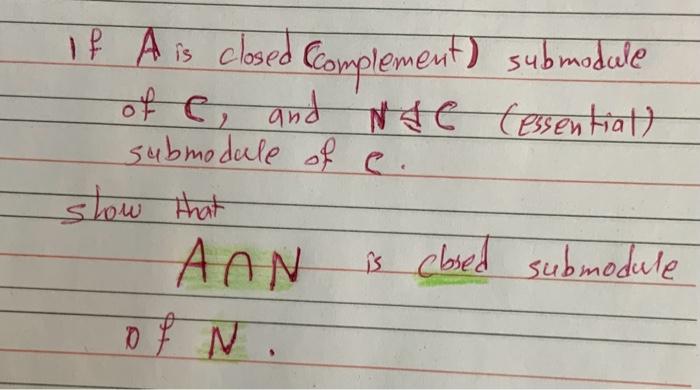 If A is closed (complement) submodule
of C, and N ⊴ C (essential)
submodule of C.
show that
A ∩ N is closed submodule
of N.